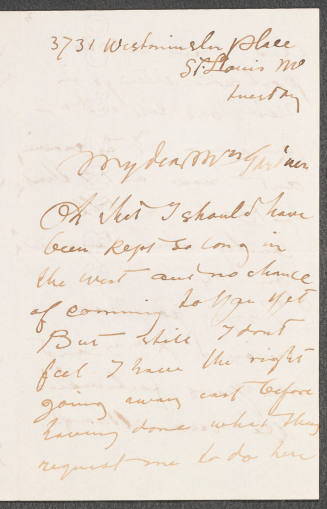 3731 Westminster Place
St. Louis Mo
tuesday
My dear Mrs Gardner
Oh that I should have
been kept so long in
the west and no chance
of coming to you yet
But still I dont
feel I have the right
going away east before
having done what they
request me to do here